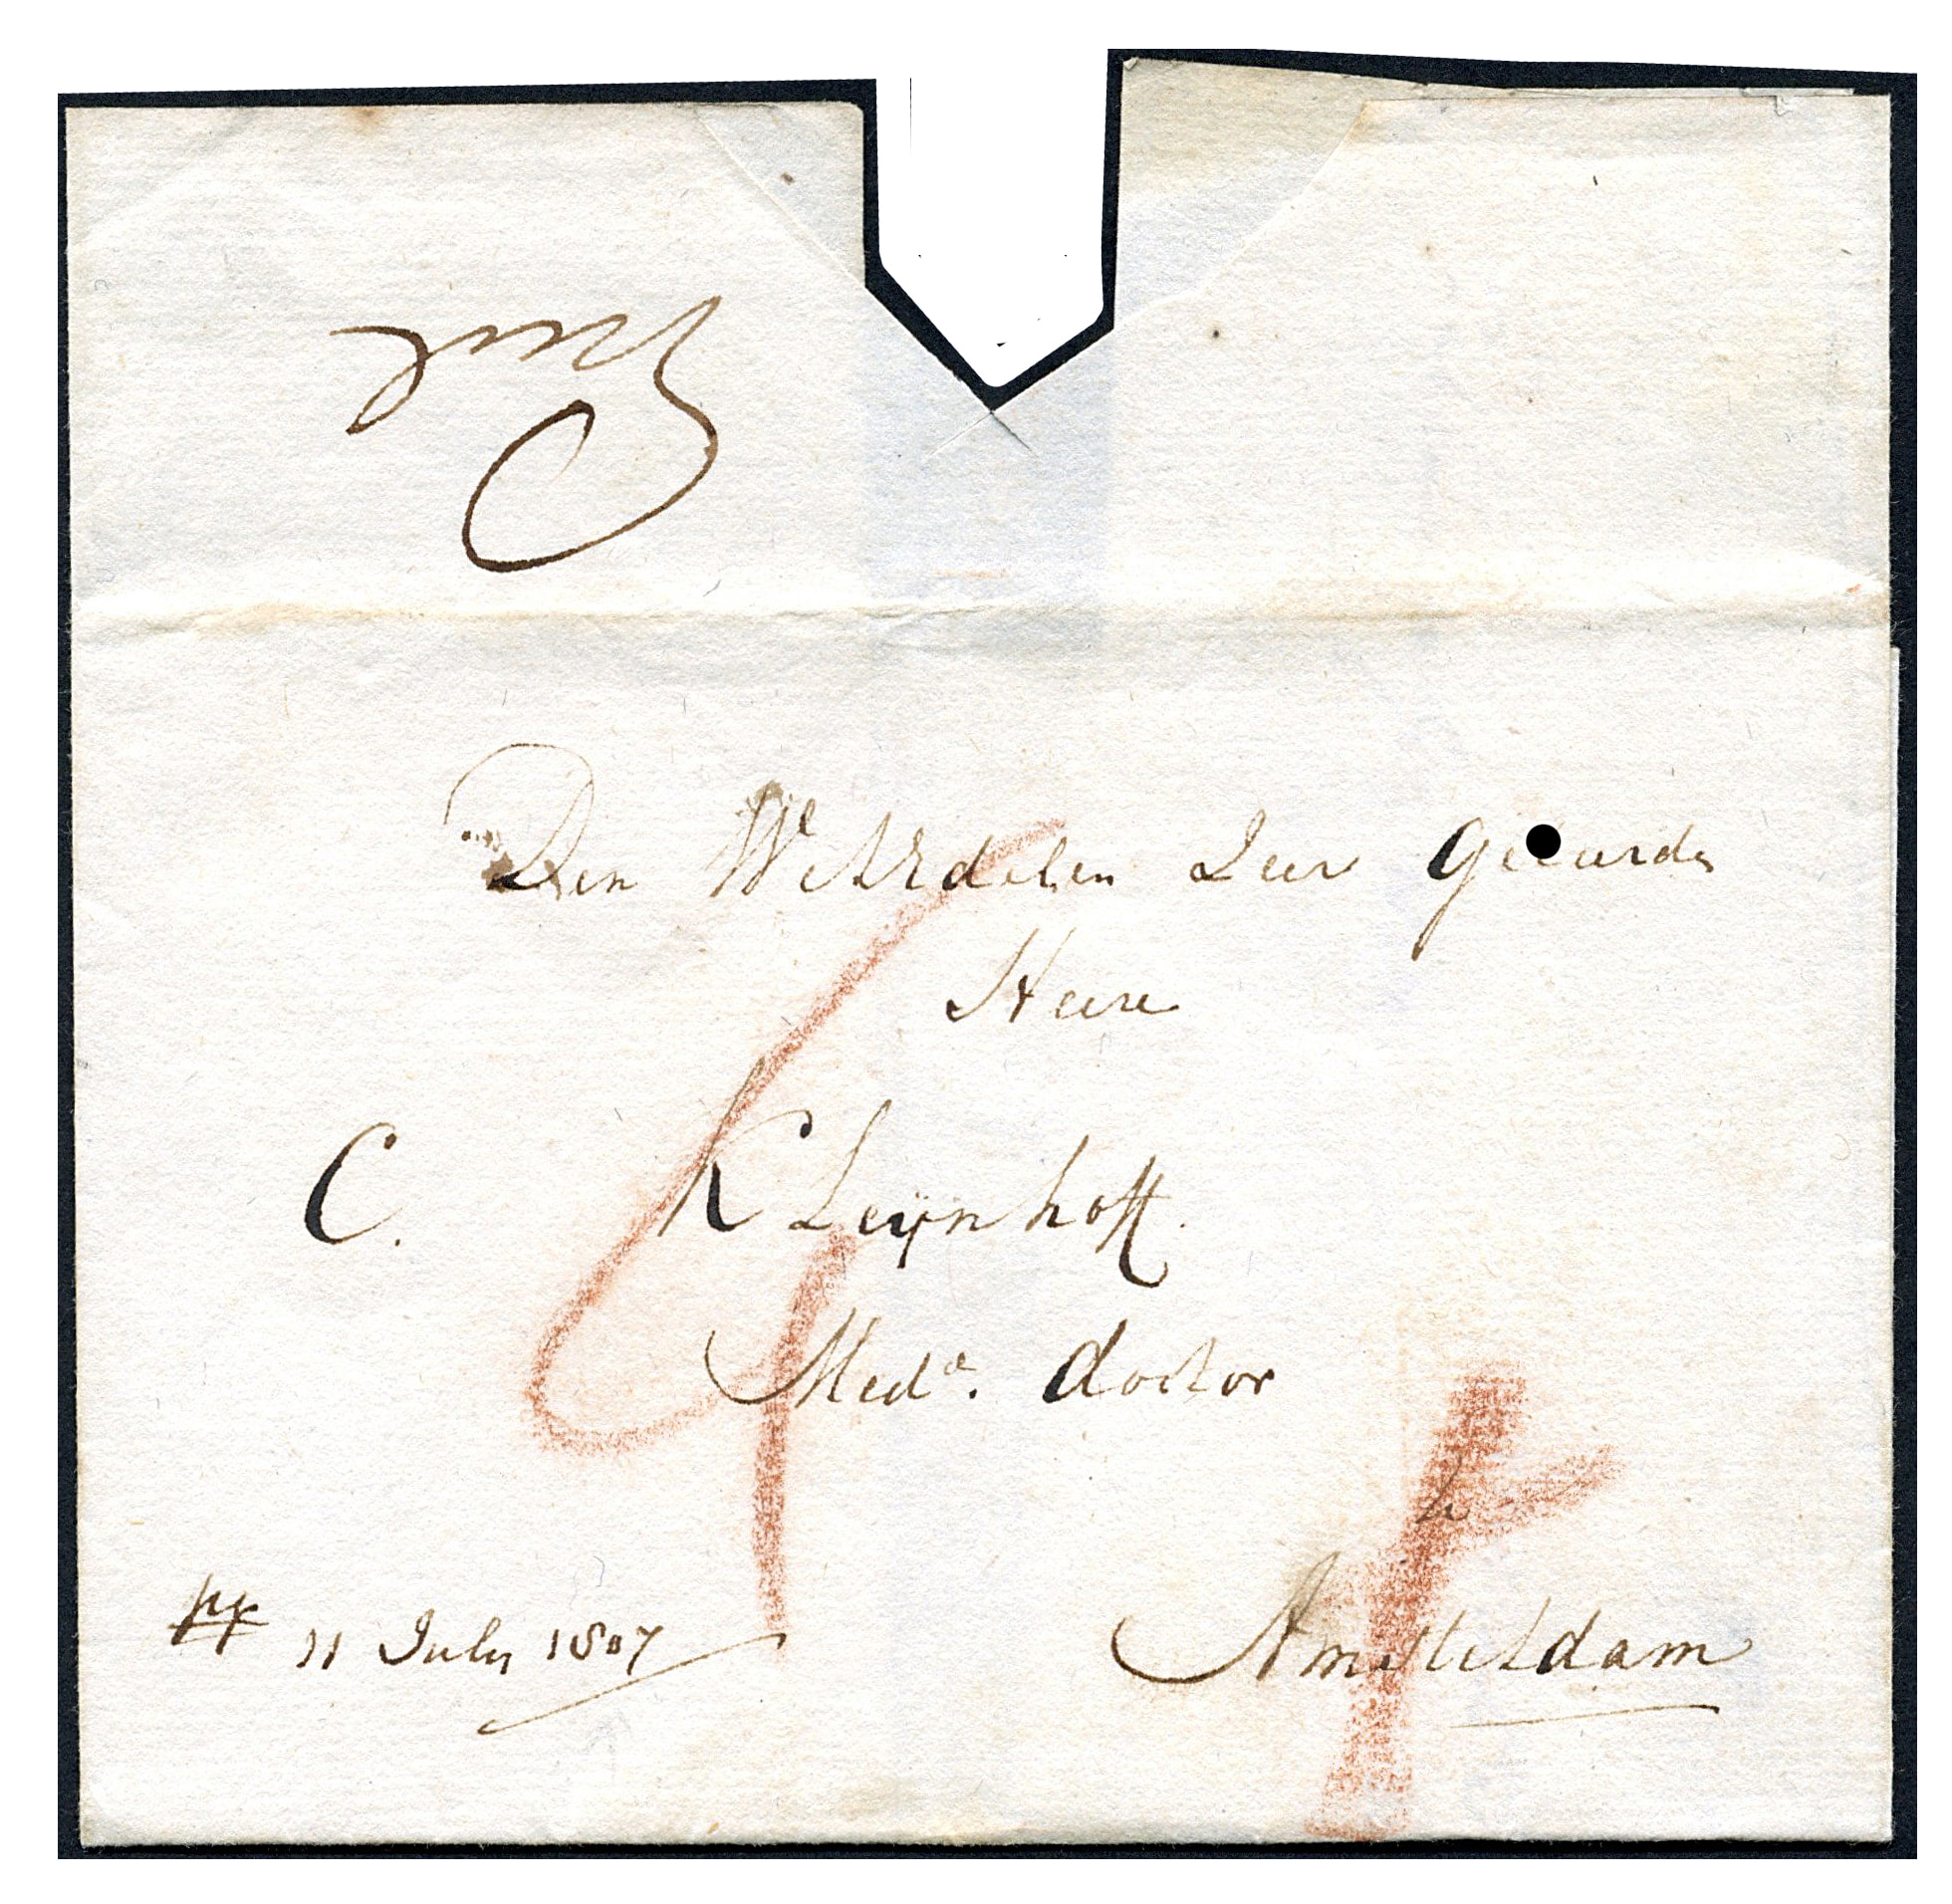 Den WelEdelen Zeer Geleerden
Heere
C. KLeijnhoff.
Med:e. doctor
te
Amsteldam
pp 11 July 1807